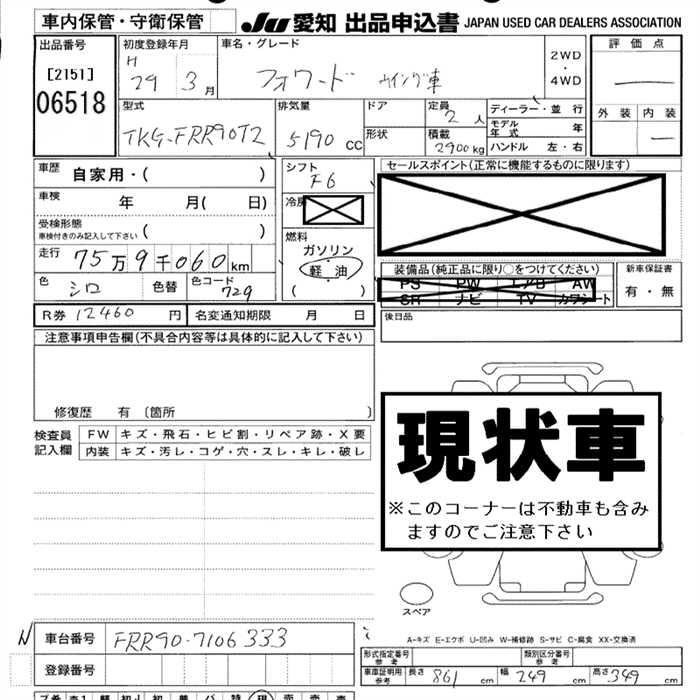 車内保管・守衛保管
JU 愛知 出品申込書 JAPAN USED CAR DEALERS ASSOCIATION
出品番号
[2151]
06518
初度登録年月
H
29 3月
車名・グレード
フォワード ウイング車
2WD
・
4WD
評価点
外装 内装
型式
TKG-FRR90T2
排気量
5190 cc
ドア
形状
定員
2人
積載
2900kg
ディーラー・並行
モデル年式 年
ハンドル 左・右
車歴
自家用・( )
車検 年 月( 日)
受検形態
車検付きのみ記入して下さい ( )
走行 75万9千060km
色 シロ 色替 色コード 729
シフト
F6
冷房
燃料
ガソリン
・
軽油
( )
セールスポイント(正常に機能するものに限ります)
装備品(純正品に限り○をつけてください)
PS PW エアB AW
SR ナビ TV カワシート
新車保証書
有・無
R券 12460 円 名変通知期限 月 日
後日品
注意事項申告欄(不具合内容等は具体的に記入して下さい)
修復歴 有 〔箇所 〕
検査員
記入欄
FW キズ・飛石・ヒビ割・リペア跡・X要
内装 キズ・汚レ・コゲ・穴・スレ・キレ・破レ
現状車
※このコーナーは不動車も含み
ますのでご注意下さい
スペア
A-キズ E-エクボ U-凹み W-補修跡 S-サビ C-腐食 XX-交換済
N 車台番号 FRR90-7106333
登録番号
形式指定番号
参考
類別区分番号
参考
車庫証明用
参考
長さ 861 幅 249 高さ 349
cm